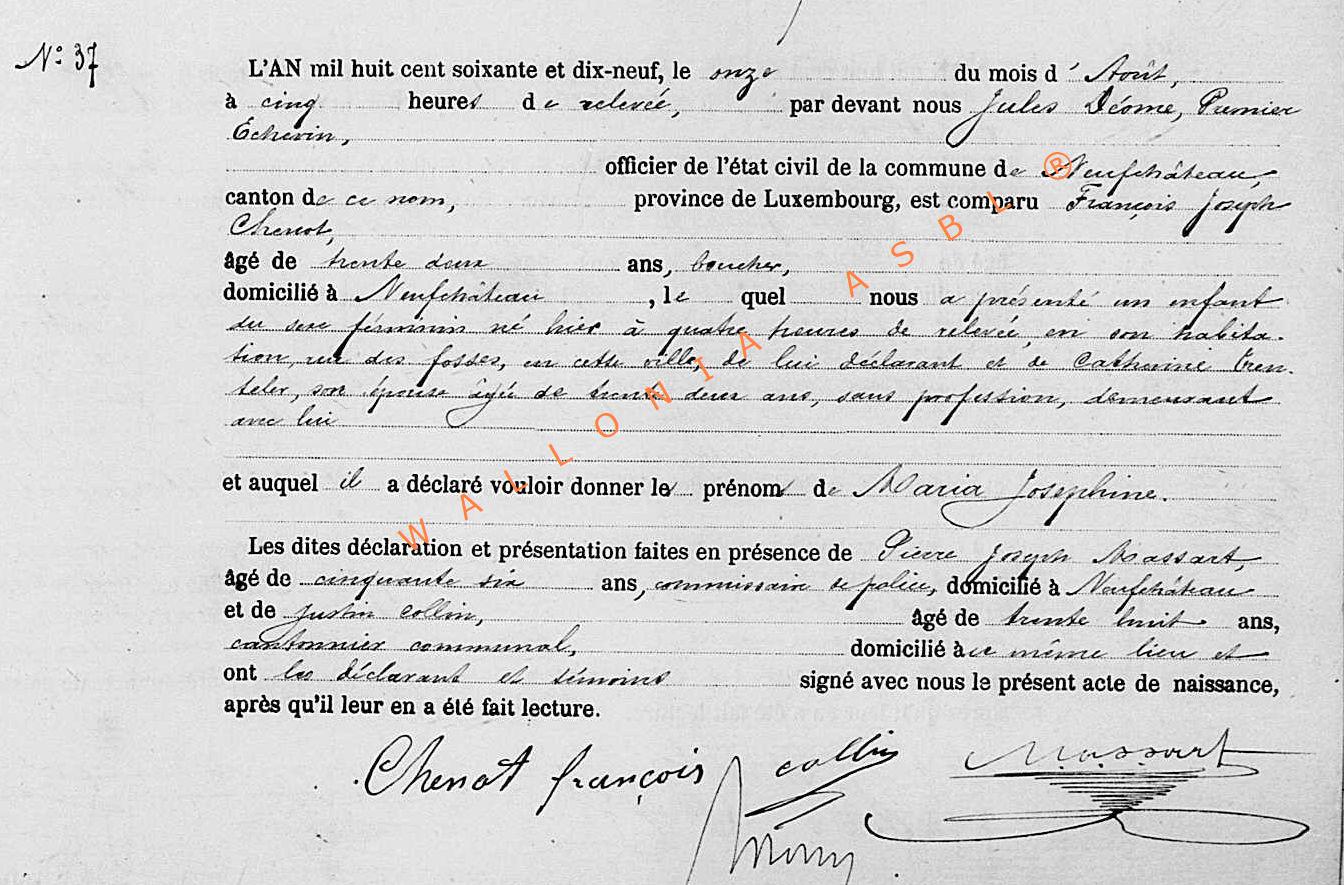 N° 37
L'AN mil huit cent soixante et dix-neuf, le onze du mois d'Août,
à cinq heures de relevée, par devant nous Jules Déome, Premier
Echevin,
officier de l'état civil de la commune de Neufchâteau,
canton de ce nom, province de Luxembourg, est comparu François Joseph
Chenot,
âgé de trente deux ans, boucher,
domicilié à Neufchâteau, le quel nous a présenté un enfant
du sexe féminin né hier à quatre heures de relevée, en son habita-
tion, rue des fosses, en cette ville, de lui déclarant et de Catherine
son épouse âgée de trente deux ans, sans profession, demeurant
avec lui
et auquel il a déclaré vouloir donner les prénoms de Maria Josephine.
Les dites déclaration et présentation faites en présence de Pierre Joseph Massart,
âgé de cinquante six ans, commissaire de police, domicilié à Neufchâteau
et de Justin Collin, âgé de trente huit ans,
cantonnier communal, domicilié à ce même lieu et
ont les déclarant et témoins signé avec nous le présent acte de naissance,
après qu'il leur en a été fait lecture.
Chenot françois collin Massart
WALLONIA ASBL ®